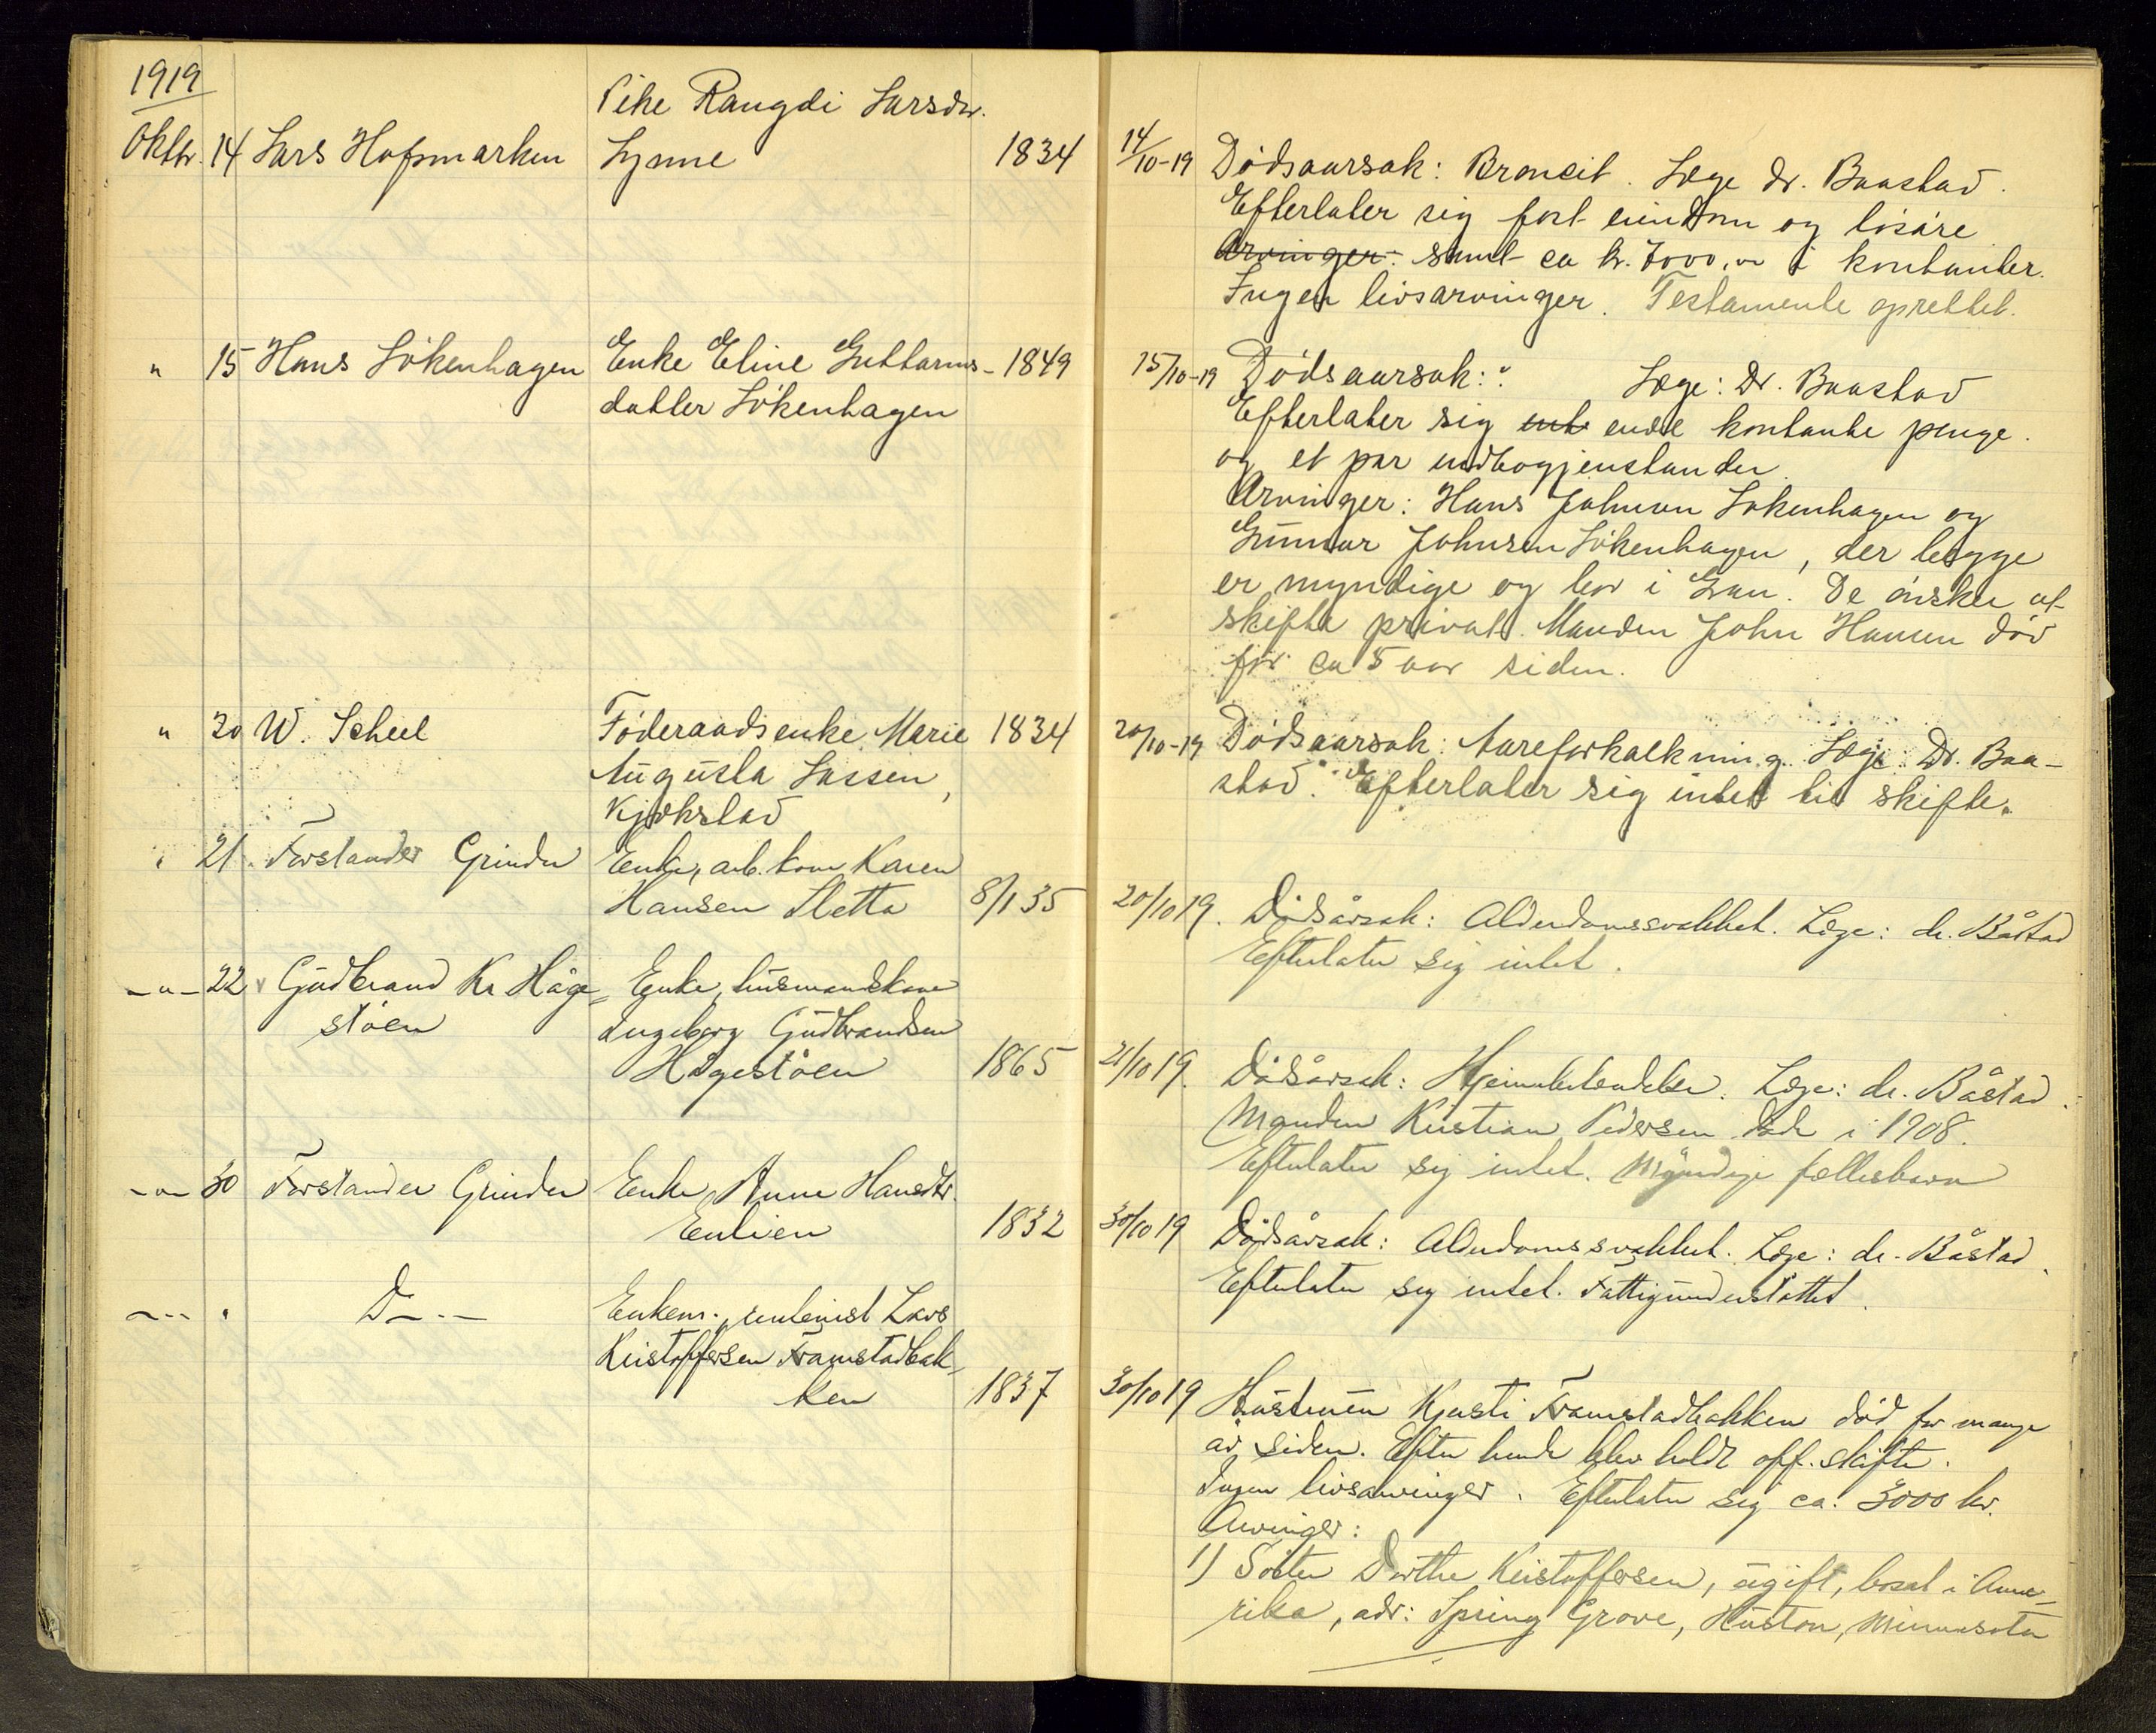 1919
Oktbr. 14 Lars Hofsmarken
Pike Rangdi Larsdtr.
Lynne 1834
14/10-19 Dødsaarsak: Broncit. Læge dr. Baastad.
Efterlater sig fast eiendom og løsøre
Arvinger: samt ca kr. 7000,00 i kontanter.
Ingen livsarvinger. Testamente oprettet.
" 15 Hans Løkenhagen
Enke Eline Guttorms- 1849
datter Løkenhagen
15/10-19 Dødsaarsak: Læge: Dr. Baastad
Efterlater sig int endel kontante penge.
og et par indbogjenstander.
Arvinger: Hans Johnsen Løkenhagen og
Gunnar Johnsen Løkenhagen, der begge
er myndige og bor i Gran. De ønsker at
skifte privat. Manden John Hansen død
for ca 5 aar siden.
" 20 W. Scheel
Føderaadsenke Marie 1834
Augusta Lassen,
Kjækstad
20/10-19 Dødsaarsak: Aareforkalkning. Læge: Dr. Baa-
stad. Efterlater sig intet til skifte.
" 21. Forstander Grinder
Enke, arb. kone Karen
Hansen Sletta 8/1 35
20/10 19. Dødsårsak: Alderdomssvakhet. Læge: dr. Båstad
Efterlater sig intet.
-"- 22 Gudbrand Kr Håge-
støen
Enke, husmandskone
Ingeborg Gudbrandsen
Hågestøen 1865
21/10 19. Dødsårsak: Hjernebetendelse. Læge: dr. Båstad.
Manden Kristian Pedersen døde i 1908.
Efterlater sig intet. Myndige fellesbarn
-"- 30 Forstander Grinder
Enke Anne Hansdtr.
Enlien 1832
30/10 19 Dødsårsak: Alderdomssvakhet. Læge: dr. Båstad.
Efterlater sig intet. Fattigunderstøttet.
-"- " D- . -
Enkem., rentenist Lars
Kristoffersen Framstadbak-
ken 1837
30/10 19 Hustruen Kjersti Framstadbakken død for mange
år siden. Efter hende blev holdt off. skifte.
Ingen livsarvinger. Efterlater sig ca. 3000 kr.
Arvinger:
1) Søster Dorthe Kristoffersen, ugift, bosat i Ame-
rika, adr: Spring Grove, Huston, Minnesota